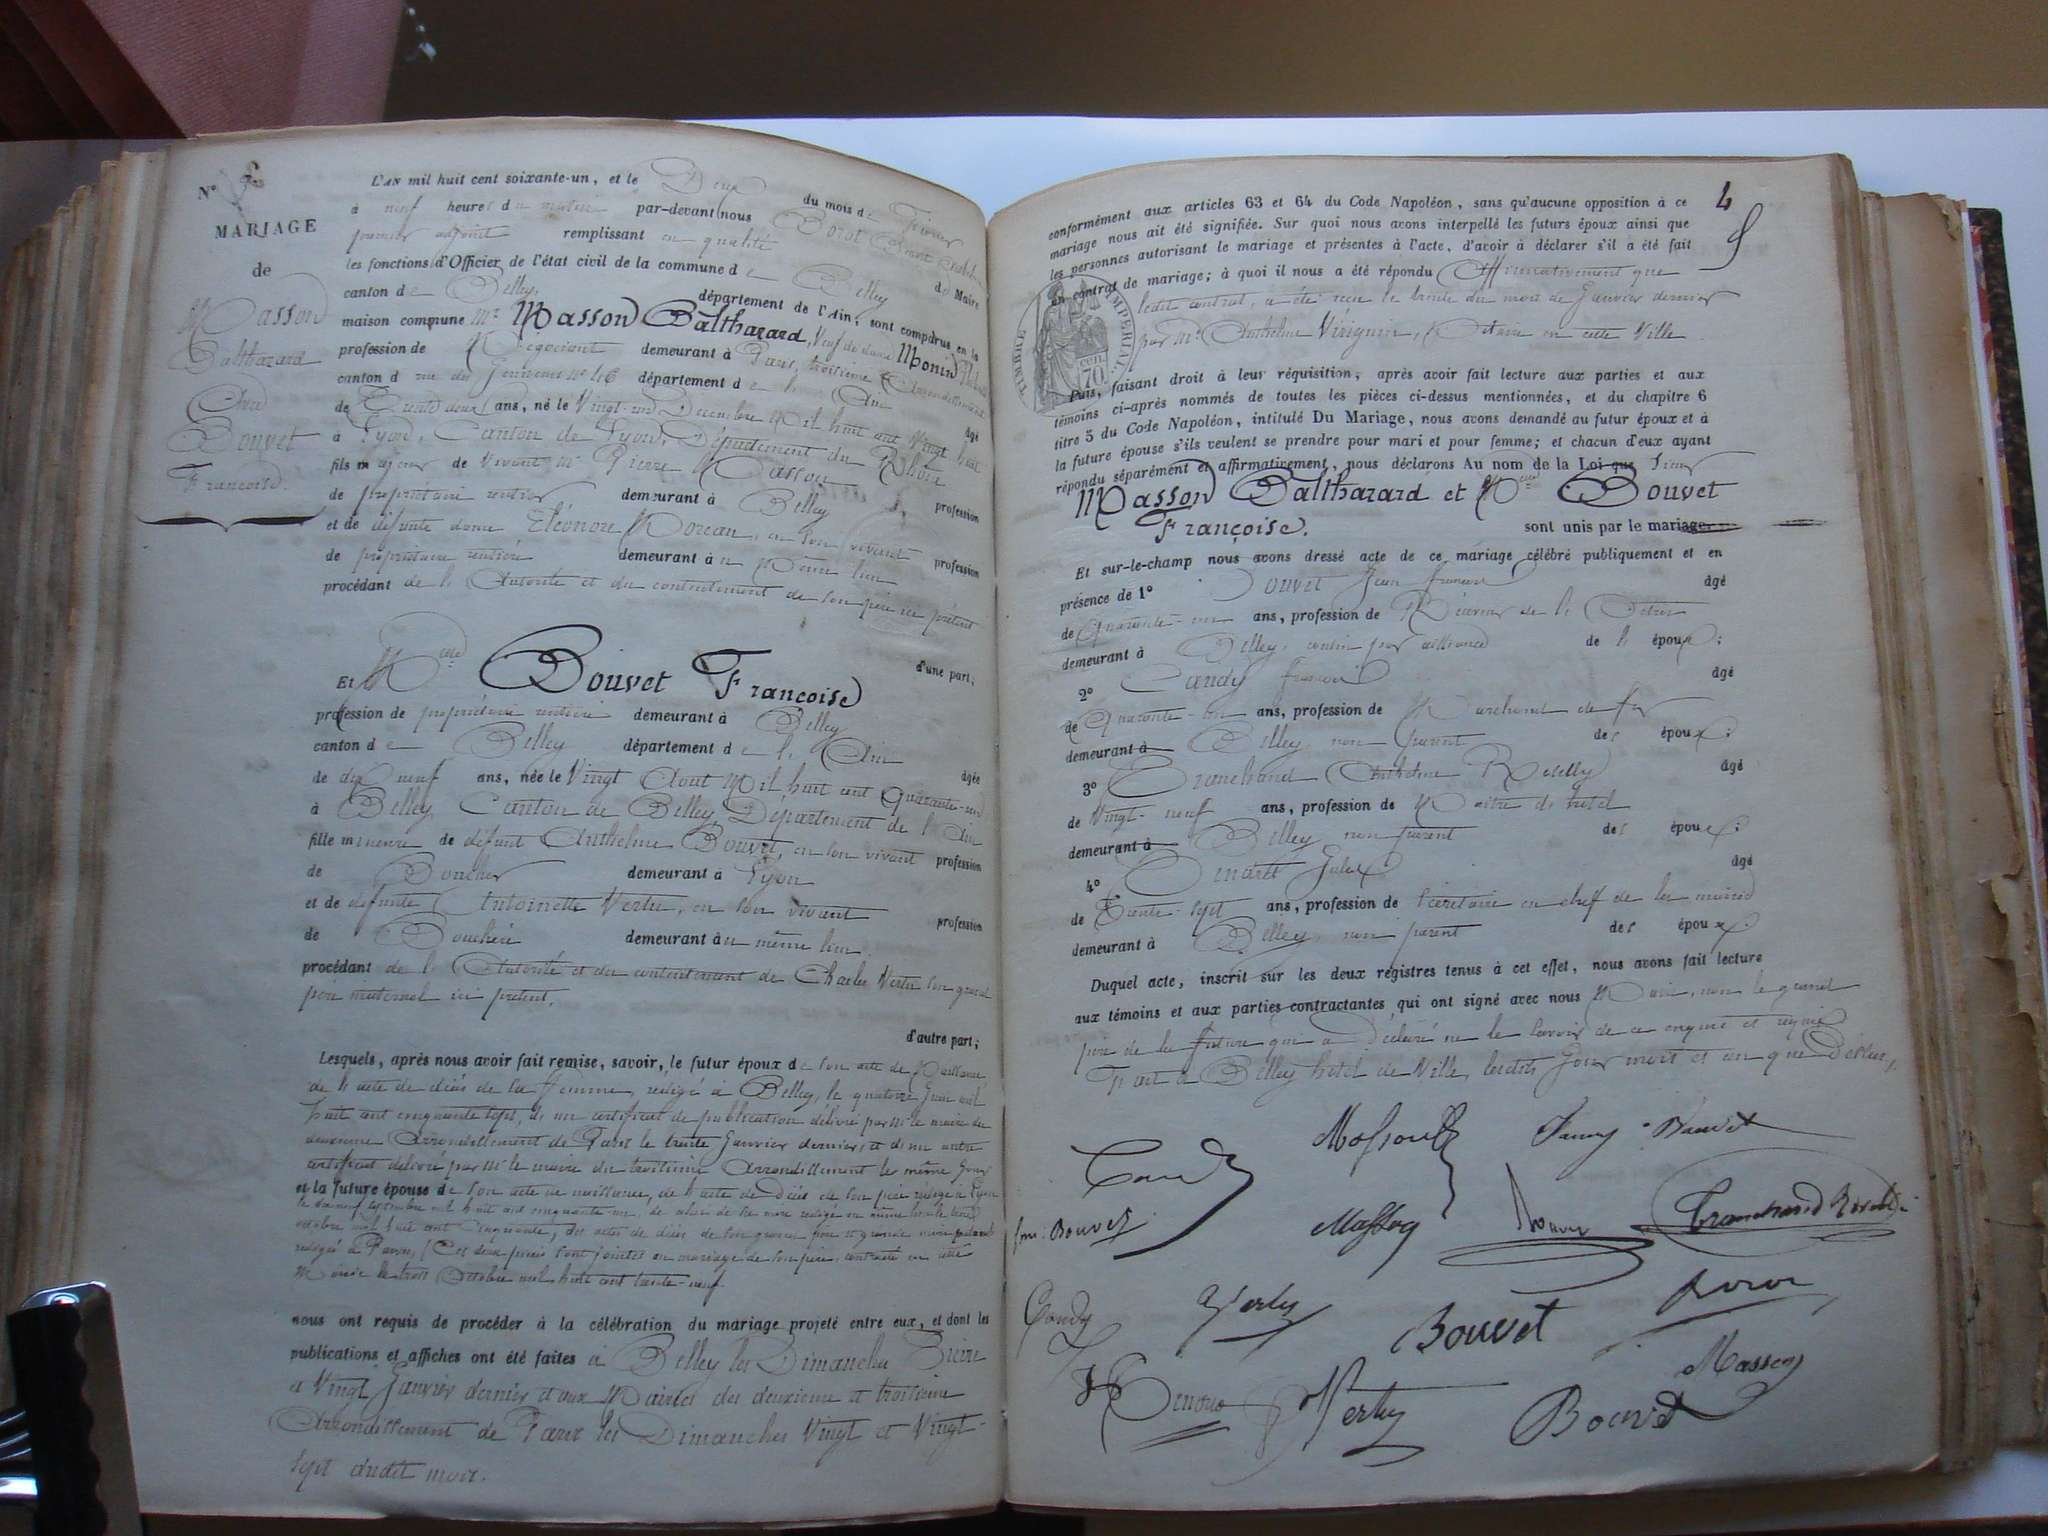 N°
MARIAGE
de
Masson
Balthazard
Avec
Bouvet
Françoise.
L'AN mil huit cent soixante-un, et le Deux du mois de Février
à neuf heures du matin par-devant nous Borot
premier adjoint remplissant en qualité de Maire
les fonctions d'Officier de l'état civil de la commune de Belley
canton de Belley, département de l'Ain; sont comparus en la
maison commune Mr Masson Balthazard, Veuf de dame Monin
profession de Négociant demeurant à Paris, troisième Arrondissement
canton d rue des Jeuneurs N° 46 département de l' Ain âgé
de Trente deux ans, né le Vingt-un Décembre Mil huit cent Vingt huit
à Lyon, Canton de Lyon, Département du Rhône
fils majeur de vivant Mr Pierre Masson profession
de propriétaire rentier demeurant à Belley
et de défunte dame Eléonore Morean, en son vivant profession
de propriétaire rentière demeurant au même lieu
procédant de l'Autorité et du contentement de son père ici présent
d'une part;
Et Melle Bouvet Françoise
profession de propriétaire rentière demeurant à Belley
canton de Belley département de l' Ain âgée
de dix neuf ans, née le Vingt Aout Mil huit cent Quarante-un
à Belley, Canton de Belley, Département de l'Ain
fille mineure de défunt Anthelme Bouvet, en son vivant profession
de Boucher demeurant à Lyon
et de défunte Antoinette Vertu, en son vivant profession
de Bouchère demeurant au même lieu.
procédant de l'Autorité et du contentement de Charles Vertu son grand
père maternel ici présent.
d'autre part;
Lesquels, après nous avoir fait remise, savoir, le futur époux de son acte de Naissance,
de l'acte de décès de sa femme, rédigé à Belley, le quatorze Juin mil
huit cent cinquante sept, d'un certificat de publication délivré par Mr le maire du
deuxième Arrondissement de Paris le trente Janvier dernier, et d'un autre
certificat délivré par Mr le maire du troisième Arrondissement le même jour
et la future épouse de son acte de naissance, de l'acte de Décès de son père rédigé à Lyon
le septembre mil huit cent cinquante un, de celui de sa mère rédigé en même lieu le
octobre mil huit cent cinquante, des actes de décès de son grand père et grande mère paternels
rédigés à (Ces deux pièces sont jointes au mariage de son père, contracté en cette
Mairie le trois Octobre mil huit cent trente-neuf.
nous ont requis de procéder à la célébration du mariage projeté entre eux, et dont les
publications et affiches ont été faites à Belley les Dimanches Treize
et Vingt Janvier dernier et aux Mairies des deuxième et troisième
Arrondissement de Paris les Dimanches Vingt et Vingt-
sept dudit mois.
4
conformément aux articles 63 et 64 du Code Napoléon, sans qu'aucune opposition à ce
mariage nous ait été signifiée. Sur quoi nous avons interpellé les futurs époux ainsi que
les personnes autorisant le mariage et présentes à l'acte, d'avoir à déclarer s'il a été fait
un contrat de mariage; à quoi il nous a été répondu Affirmativement que
ledit contrat, a été reçu le trente du mois de Janvier dernier
par Mr Anthelme Vérignin, Notaire en cette Ville
TIMBRE IMPÉRIAL
70 cen.
Puis, faisant droit à leur réquisition, après avoir fait lecture aux parties et aux
témoins ci-après nommés de toutes les pièces ci-dessus mentionnées, et du chapitre 6
titre 5 du Code Napoléon, intitulé Du Mariage, nous avons demandé au futur époux et à
la future épouse s'ils veulent se prendre pour mari et pour femme; et chacun d'eux ayant
répondu séparément et affirmativement, nous déclarons Au nom de la Loi que Sieur
Masson Balthazard et Melle Bouvet
Françoise. sont unis par le mariage.
Et sur-le-champ nous avons dressé acte de ce mariage célébré publiquement et en
présence de 1° Bouvet Jean François âgé
de Quarante-un ans, profession de de l'
demeurant à Belley, cousin par alliance de l' époux;
2° Candy François âgé
de Quarante-un ans, profession de Marchand de fer
demeurant à Belley, non parent des époux;
3° Tranchand Anthelme Roselly âgé
de Vingt-neuf ans, profession de Maitre d'hotel
demeurant à Belley, non parent des époux;
4° Jules âgé
de Trente-sept ans, profession de Secrétaire en chef de la mairie
demeurant à Belley, non parent des époux.
Duquel acte, inscrit sur les deux registres tenus à cet effet, nous avons fait lecture
aux témoins et aux parties contractantes qui ont signé avec nous Maire, non le grand
père de la future qui a Déclaré ne le savoir de ce enquis et requis
Fait à Belley hotel de Ville, lesdits jour mois et an que Dessus,
Masson B
Fanny Bouvet
Cand
fois. Bouvet
Masson
Tranchand Roselli
Candy
Vertu
Bouvet
Borot
Masson
Vertu
Bouvet